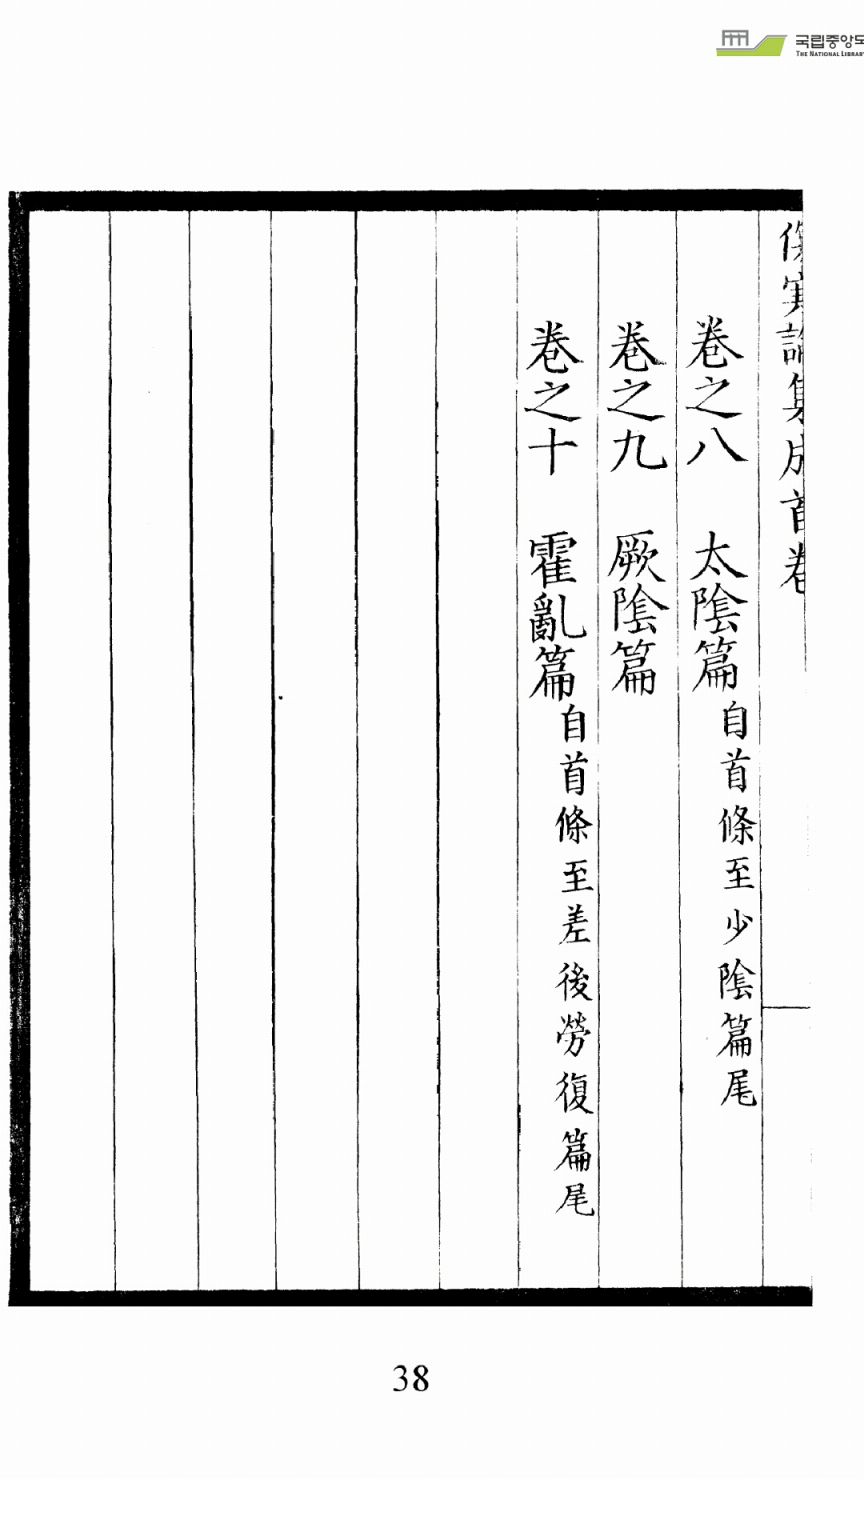 국립중앙도
THE NATIONAL LIBRAR
傷寒論集成首卷
卷之八 太陰篇自首條至少陰篇尾
卷之九 厥陰篇
卷之十 霍亂篇自首條至差後勞復篇尾
38